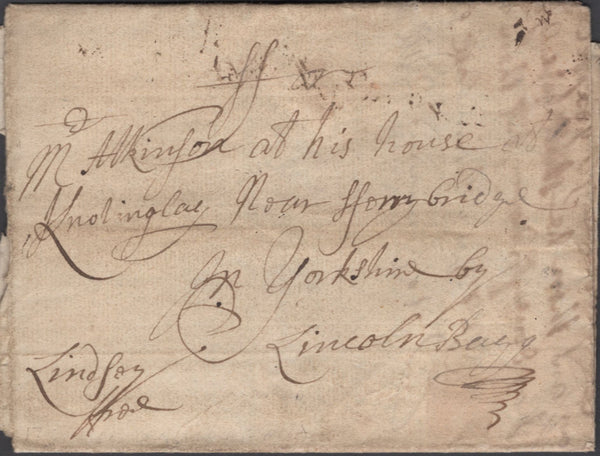 ff
Md Atkinson at his house at
Knotinglay Near fferrybridge
In Yorkshire by
Lincoln Bagg
Lindsey
ffree